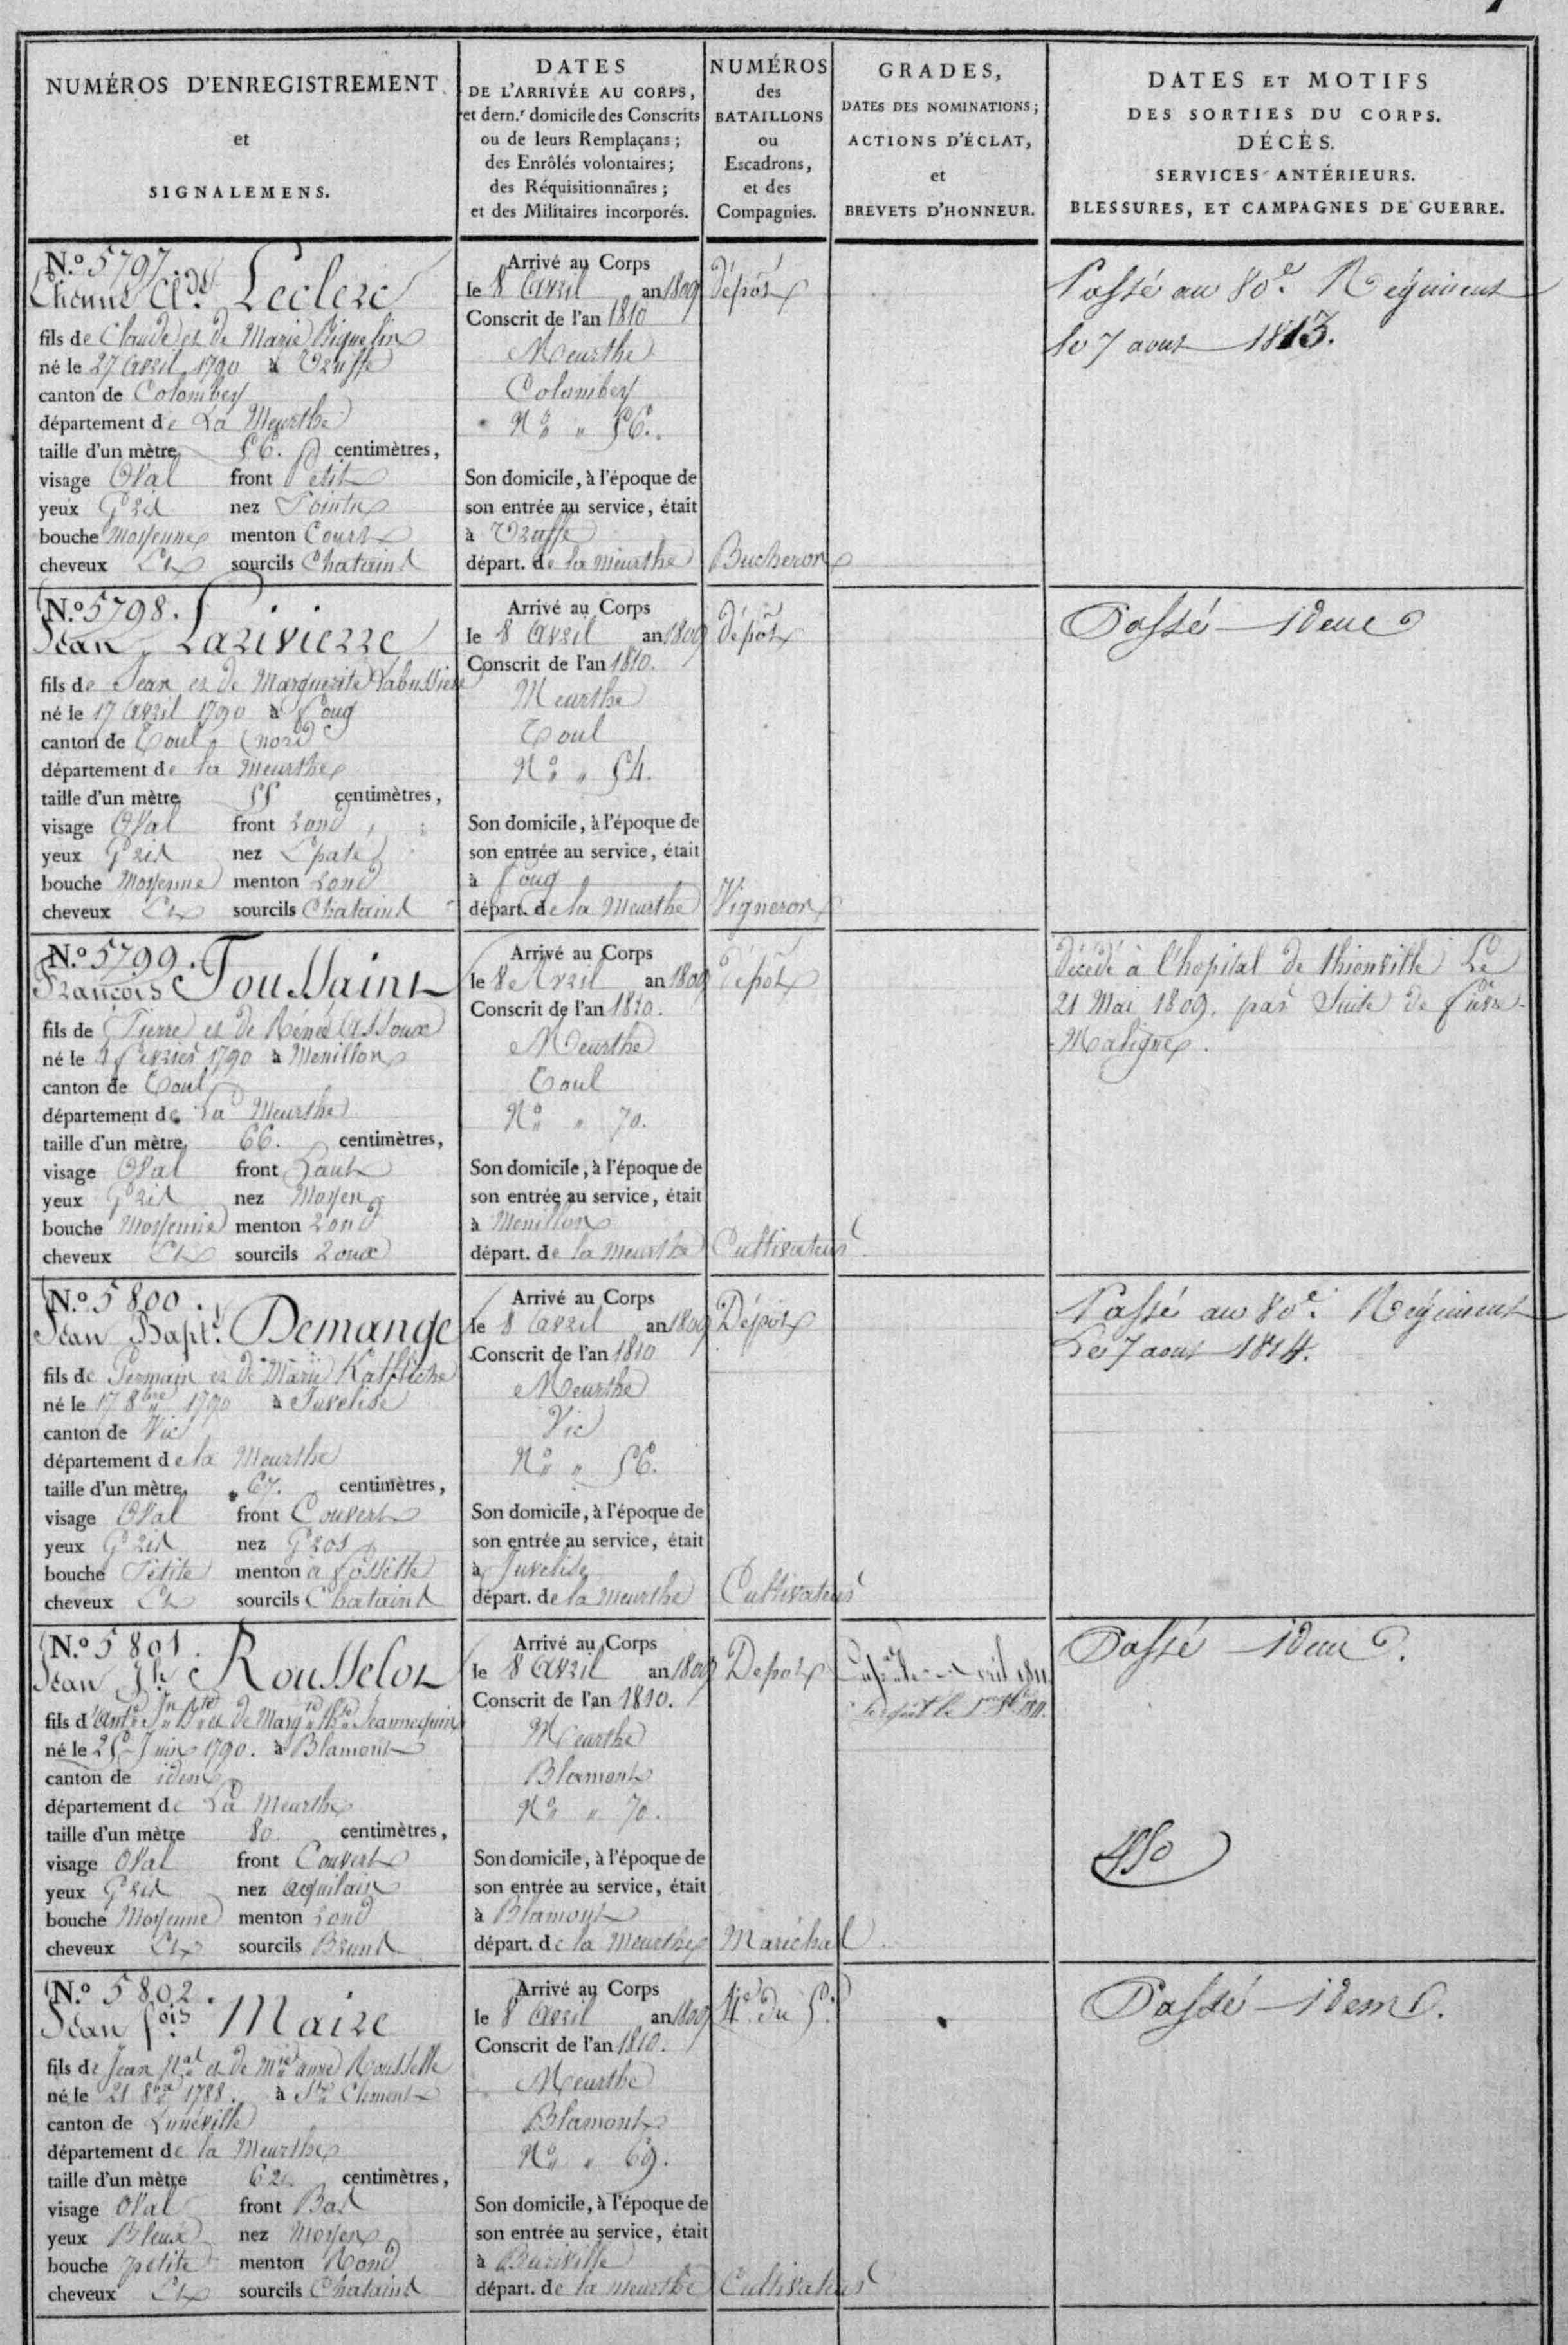 NUMÉROS D'ENREGISTREMENT
et
SIGNALEMENS.
DATES
DE L'ARRIVÉE AU CORPS,
et dern.r domicile des Conscrits
ou de leurs Remplaçans ;
des Enrôlés volontaires ;
des Réquisitionnaires ;
et des Militaires incorporés.
NUMÉROS
des
BATAILLONS
ou
Escadrons,
et des
Compagnies.
GRADES,
DATES DES NOMINATIONS ;
ACTIONS D'ÉCLAT,
et
BREVETS D'HONNEUR.
DATES ET MOTIFS
DES SORTIES DU CORPS.
DÉCÈS.
SERVICES ANTÉRIEURS.
BLESSURES, ET CAMPAGNES DE GUERRE.
N.o 5797.
Cl.de Leclerc
fils de Claude et de Marie
né le 27 Avril 1790 à
canton de Colombey
département de La Meurthe
taille d'un mètre 56. centimètres,
visage Oval front Petit
yeux Gris nez Pointu
bouche Moyenne menton Court
cheveux Et sourcils Chatains
Arrivé au Corps
le 8 Avril an 1809
Conscrit de l'an 1810
Meurthe
Colombey
N.o " 56.
Son domicile, à l'époque de
son entrée au service, était
à
départ. de la Meurthe
dépôt
Bucheron
Passé au 80.e Régiment
le 7 aout 1813.
N.o 5798.
Jean Larivierre
fils de Jean et de Marguerite Labussiere
né le 17 Avril 1790 à Foug
canton de Toul (nord)
département de la Meurthe
taille d'un mètre 55 centimètres,
visage Oval front rond
yeux Gris nez Epaté
bouche Moyenne menton rond
cheveux Et sourcils Chatains
Arrivé au Corps
le 8 Avril an 1809
Conscrit de l'an 1810.
Meurthe
Toul
N.o " 54.
Son domicile, à l'époque de
son entrée au service, était
à Foug
départ. de la Meurthe
dépôt
Vigneron
Passé idem
N.o 5799.
François Toussaint
fils de Pierre et de Rénée
né le Fevrier 1790 à Menillon
canton de Toul
département de La Meurthe
taille d'un mètre 66. centimètres,
visage Oval front haut
yeux Gris nez Moyen
bouche Moyenne menton rond
cheveux Et sourcils roux
Arrivé au Corps
le 8 Avril an 1809
Conscrit de l'an 1810.
Meurthe
Toul
N.o " 70.
Son domicile, à l'époque de
son entrée au service, était
à Menillon
départ. de la Meurthe
dépôt
Cultivateur
décédé à l'hopital de thionville Le
21 Mai 1809. par Suite de fievre
Maligne.
N.o 5800.
Jean Bapt.e Demange
fils de Germain et de Marie
né le 17 8bre 1790 à Juvelise
canton de Vic
département de la Meurthe
taille d'un mètre 67. centimètres,
visage Oval front Couvert
yeux Gris nez Gros
bouche Petite menton à fossette
cheveux Et sourcils Chatains
Arrivé au Corps
le 8 Avril an 1809
Conscrit de l'an 1810
Meurthe
Vic
N.o " 56.
Son domicile, à l'époque de
son entrée au service, était
à Juvelise
départ. de la Meurthe
Dépôt
Cultivateur
Passé au 80.e Régiment
Le 7 aout 1814.
N.o 5801.
Jean Rousselot
fils d' et de Marg.te Jeannequin
né le 25 Juin 1790. à Blamont
canton de idem
département de La Meurthe
taille d'un mètre 80. centimètres,
visage Oval front Couvert
yeux Gris nez aquilain
bouche Moyenne menton rond
cheveux Et sourcils Bruns
Arrivé au Corps
le 8 Avril an 1809
Conscrit de l'an 1810.
Meurthe
Blamont
N.o " 70.
Son domicile, à l'époque de
son entrée au service, était
à Blamont
départ. de la Meurthe
Depot
Maréchal
Passé idem.
N.o 5802.
Jean f.ois Maire
fils de Jean et de M.ie anne Rousselle
né le 21 8bre 1788. à St. Clement
canton de Lunéville
département de la Meurthe
taille d'un mètre 62. centimètres,
visage Oval front Bas
yeux Bleux nez Moyen
bouche petite menton Rond
cheveux Et sourcils Chatains
Arrivé au Corps
le 8 Avril an 1809
Conscrit de l'an 1810.
Meurthe
Blamont
N.o " 69.
Son domicile, à l'époque de
son entrée au service, était
à Buriville
départ. de la Meurthe
4.e du 5.e
Cultivateur
Passé idem.